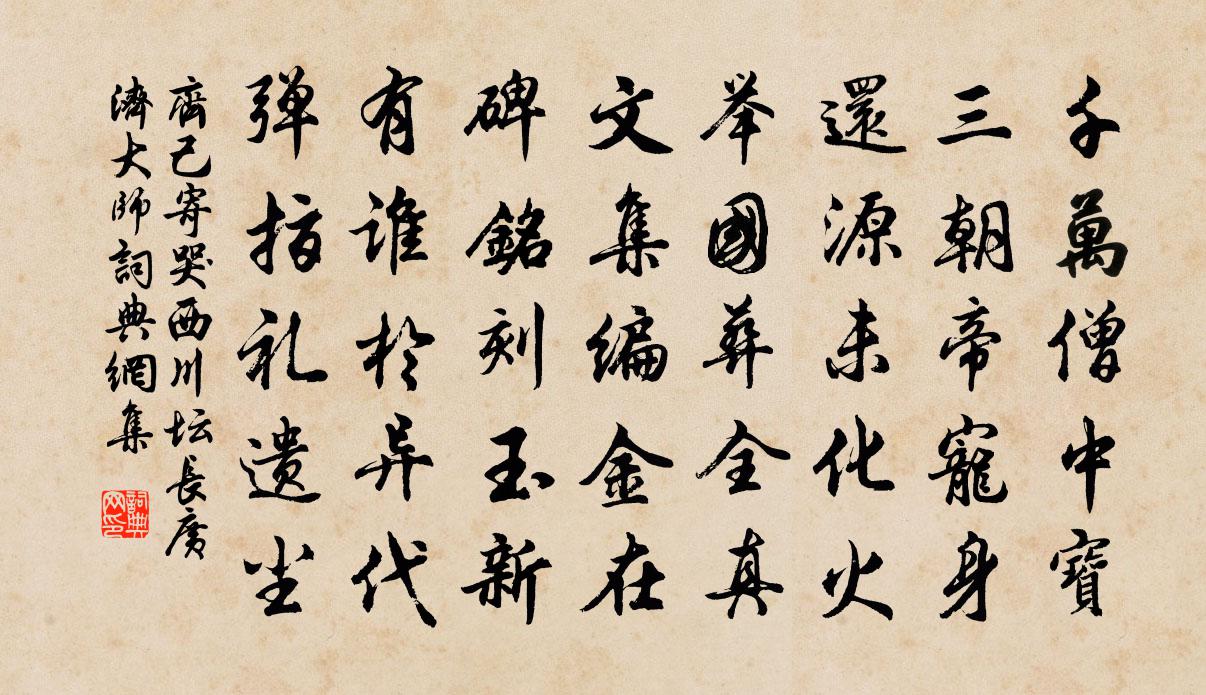 千萬僧中寶
三朝帝寵身
還源未化火
举國葬全真
文集编金在
碑銘刻玉新
有谁於异代
弹指礼遗尘
齊己寄哭西川坛長廣
濟大師詞典網集
詞典网印